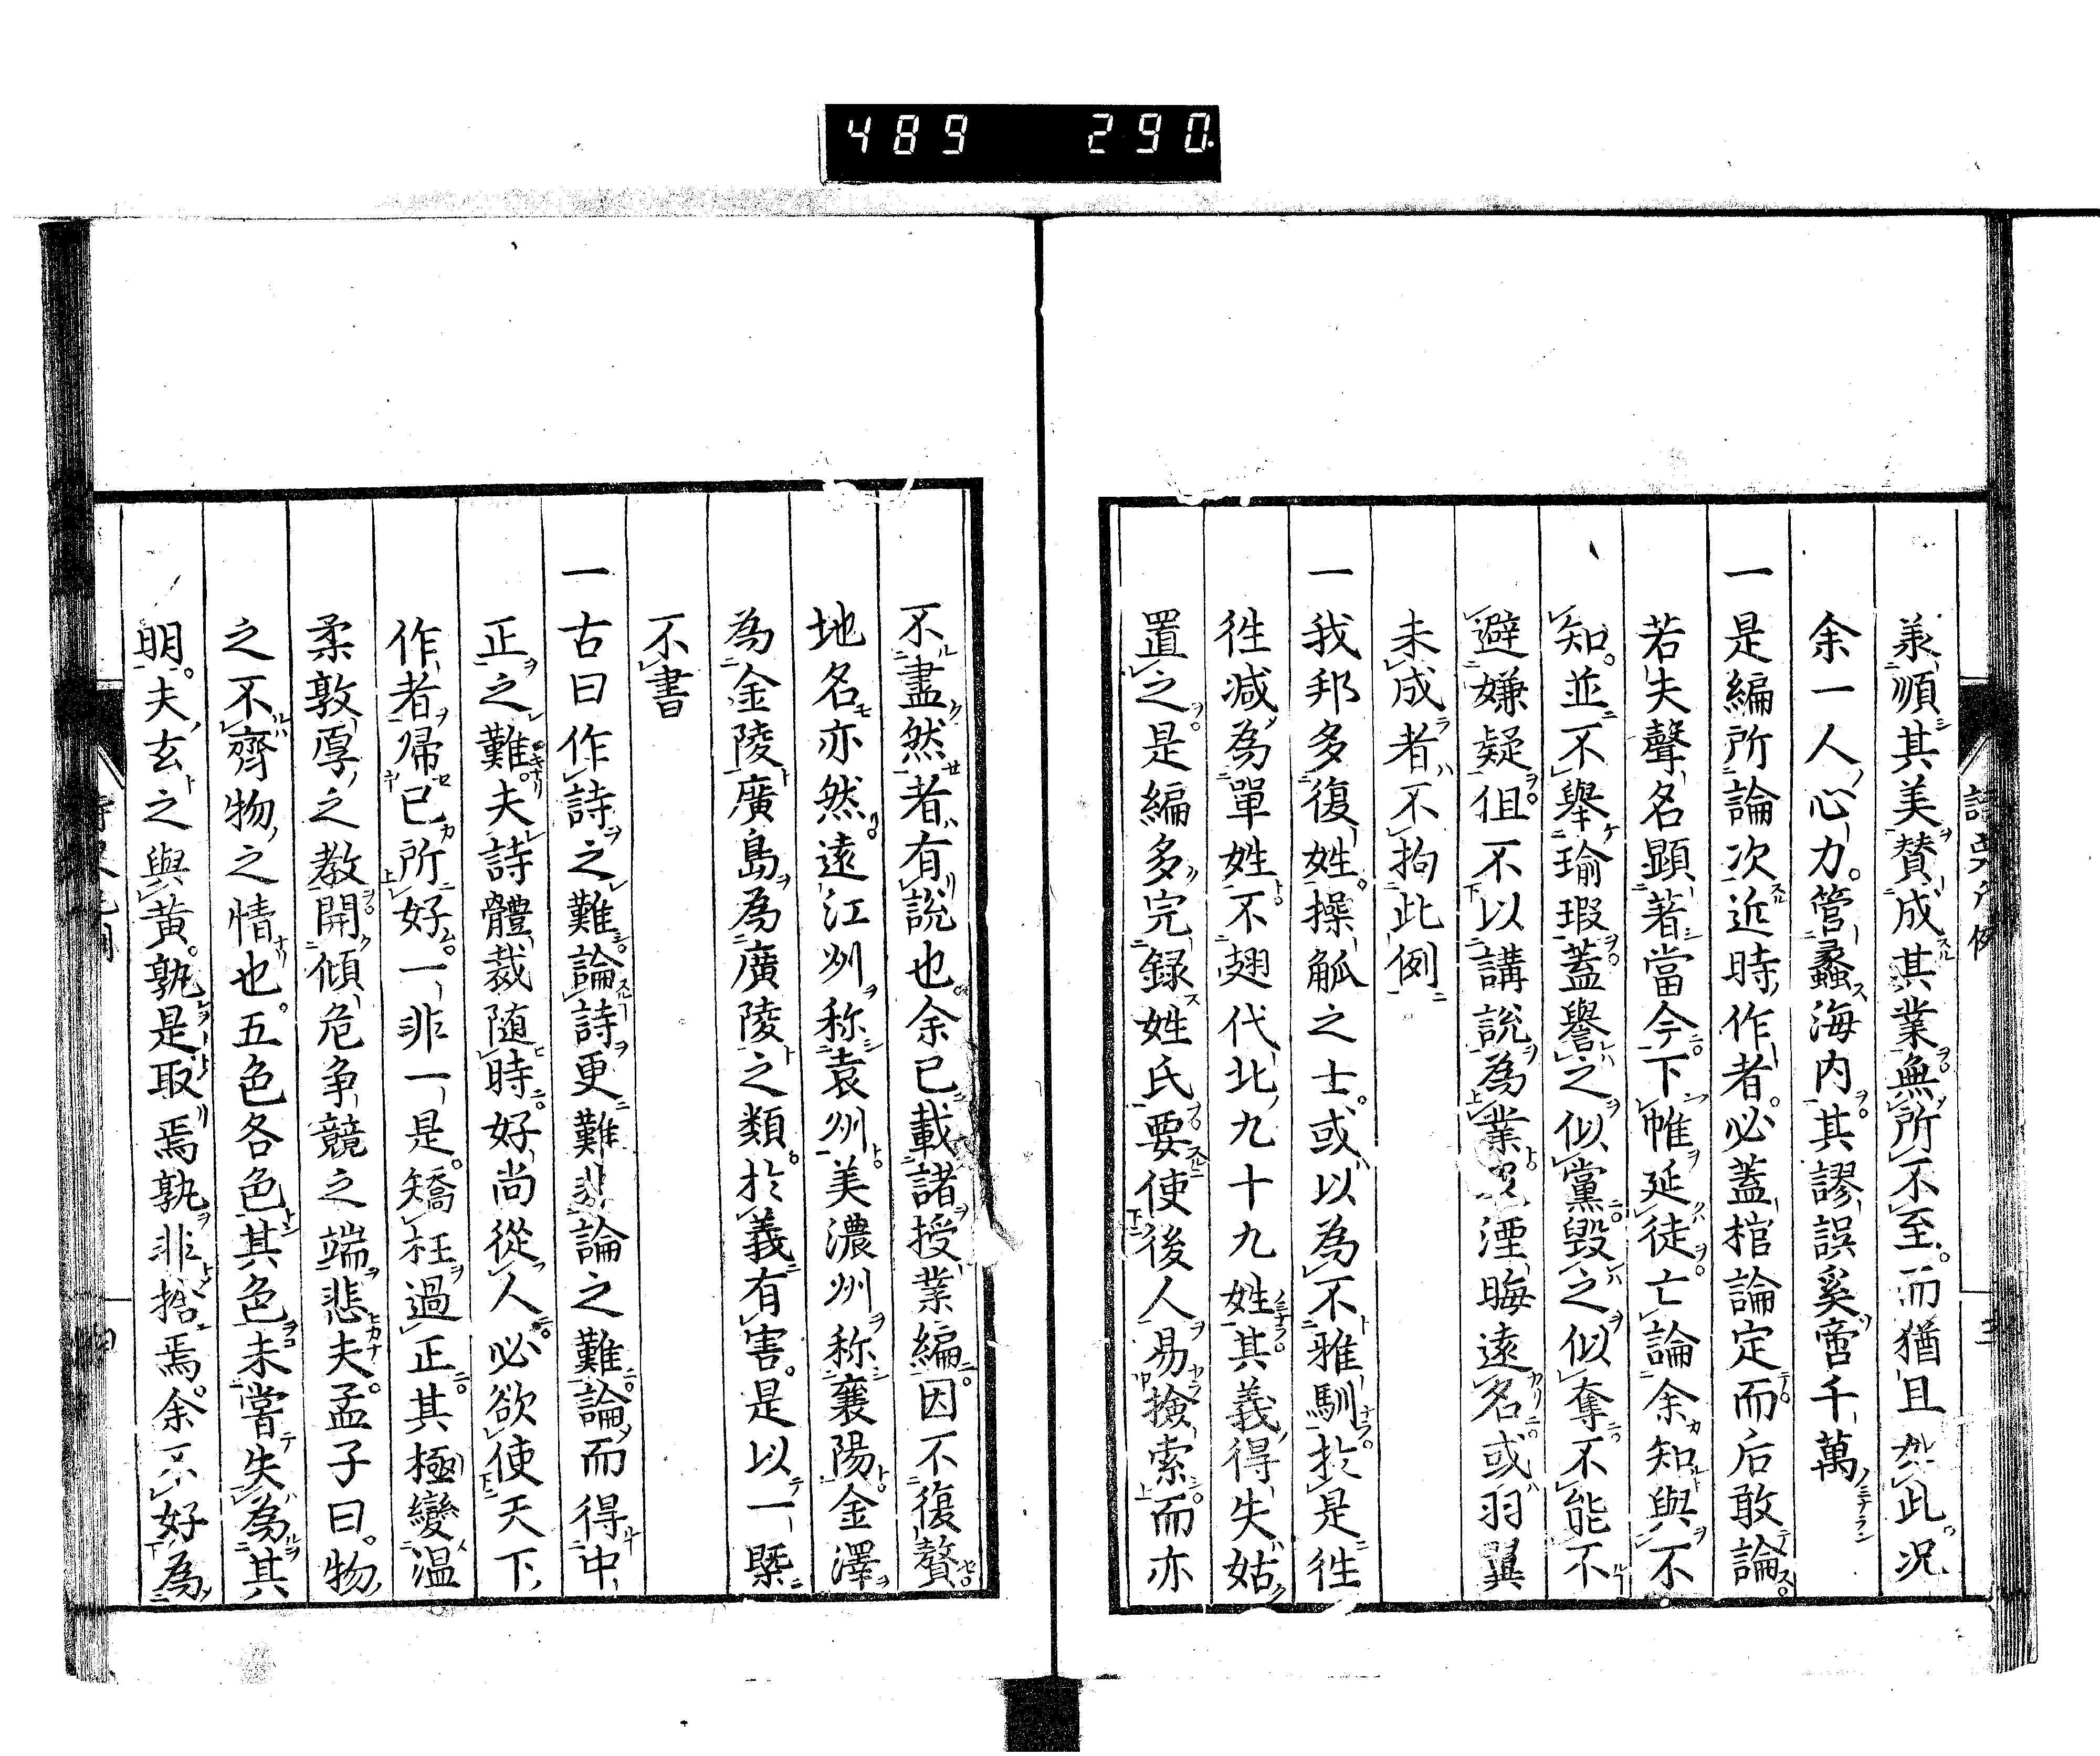 489 290
羕順其美賛成其業無所不至而猶且然此况
余一人心力管蠡海内其謬誤奚啻千萬
一是編所論次近時作者必蓋棺論定而后敢論
若夫聲名顕著當今下帷延徒亡論余知與不
知並不舉瑜瑕蓋譽之似黨毀之似奪不能不
避嫌疑徂不以講說為業 湮晦遠名或羽翼
未成者不拘此例
一我邦多復姓操觚之士或以為不雅馴於是徃
徃減為單姓不翅代北九十九姓其義得失姑
置之是編多完録姓氏要使後人易撿索而亦
不盡然者有說也余已載諸授業編因不復贅
地名亦然遠江州称袁州美濃州称襄陽金澤
為金陵廣島為廣陵之類於義有害是以一槩
不書
一古曰作詩之難論詩更難非論之難論而得中
正之難夫詩體裁随時好尚從人必欲使天下
作者帰已所好一非一是矯枉過正其極變温
柔敦厚之教開傾危争競之端悲夫孟子曰物
之不齊物之情也五色各色其色未嘗失為其
明夫玄之與黄孰是取焉孰非捨焉余不好為